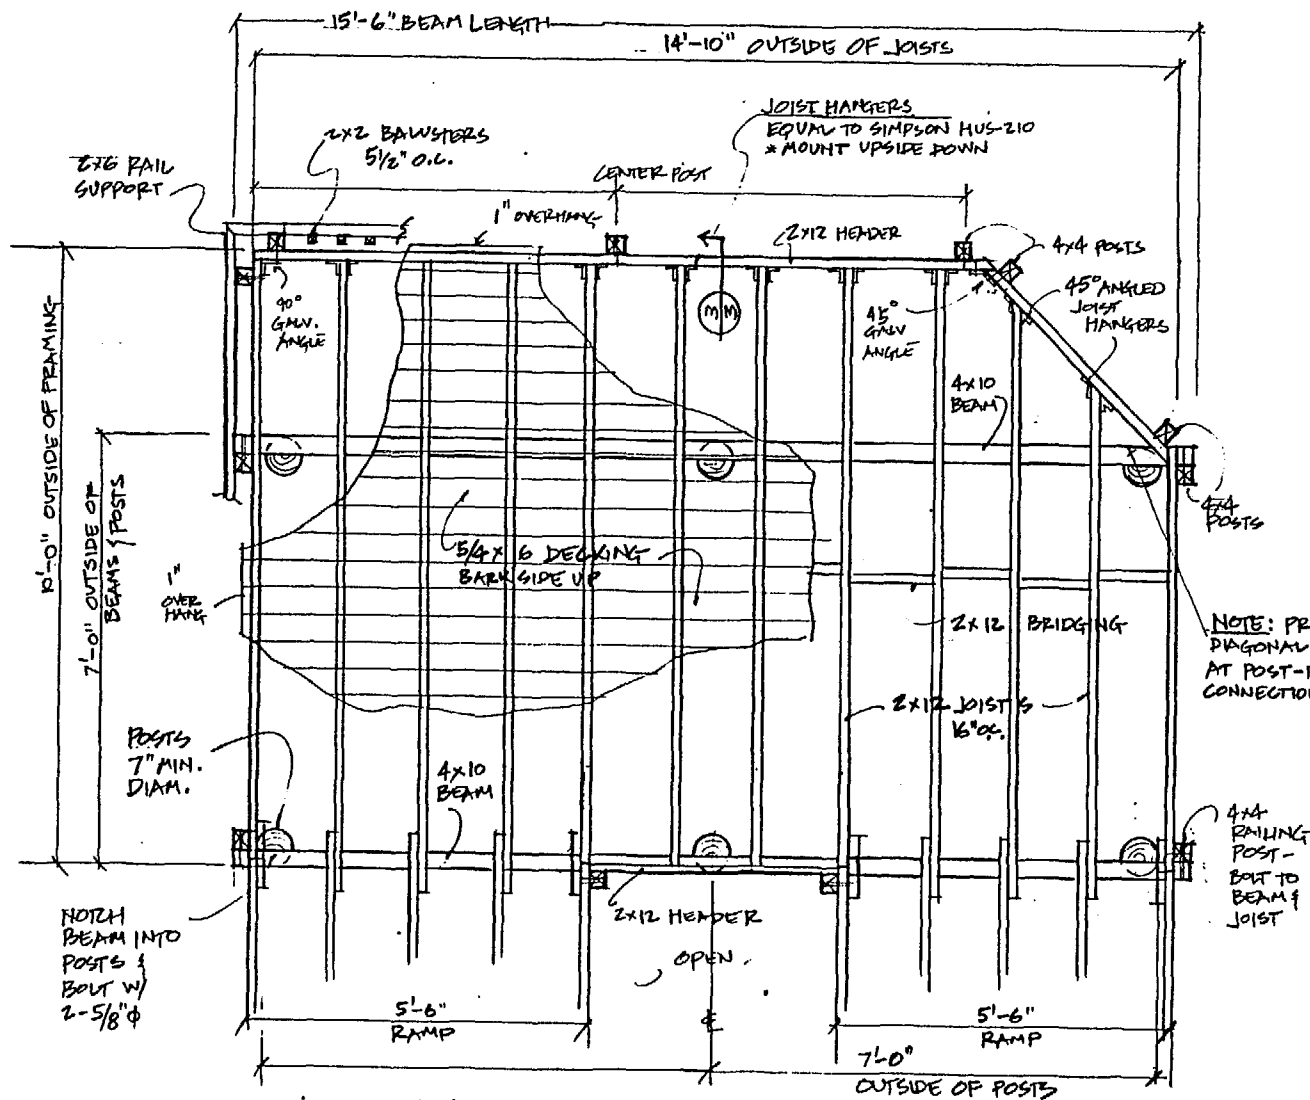 15'-6" BEAM LENGTH
14'-10" OUTSIDE OF JOISTS
JOIST HANGERS
EQUAL TO SIMPSON HUS-210
* MOUNT UPSIDE DOWN
2x2 BALUSTERS
5 1/2" O.C.
2x6 RAIL
SUPPORT
CENTER POST
1" OVERHANG
2x12 HEADER
4x4 POSTS
90°
GALV.
ANGLE
M M
45°
GALV
ANGLE
45° ANGLED
JOIST
HANGERS
4x10
BEAM
10'-0" OUTSIDE OF FRAMING
7'-0" OUTSIDE OF
BEAMS & POSTS
4x4
POSTS
5/4 x 6 DECKING
BARK SIDE UP
1"
OVER
HANG
2x12 BRIDGING
NOTE: PR
DIAGONAL
AT POST-
CONNECTION
2x12 JOISTS
16" O.C.
POSTS
7" MIN.
DIAM.
4x10
BEAM
4x4
RAILING
POST-
BOLT TO
BEAM &
JOIST
NOTCH
BEAM INTO
POSTS &
BOLT W/
2-5/8"ϕ
2x12 HEADER
OPEN
5'-6"
RAMP
℄
5'-6"
RAMP
7'-0"
OUTSIDE OF POSTS